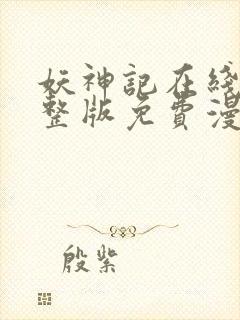 妖神記在綫
整版免費漫
殷紫